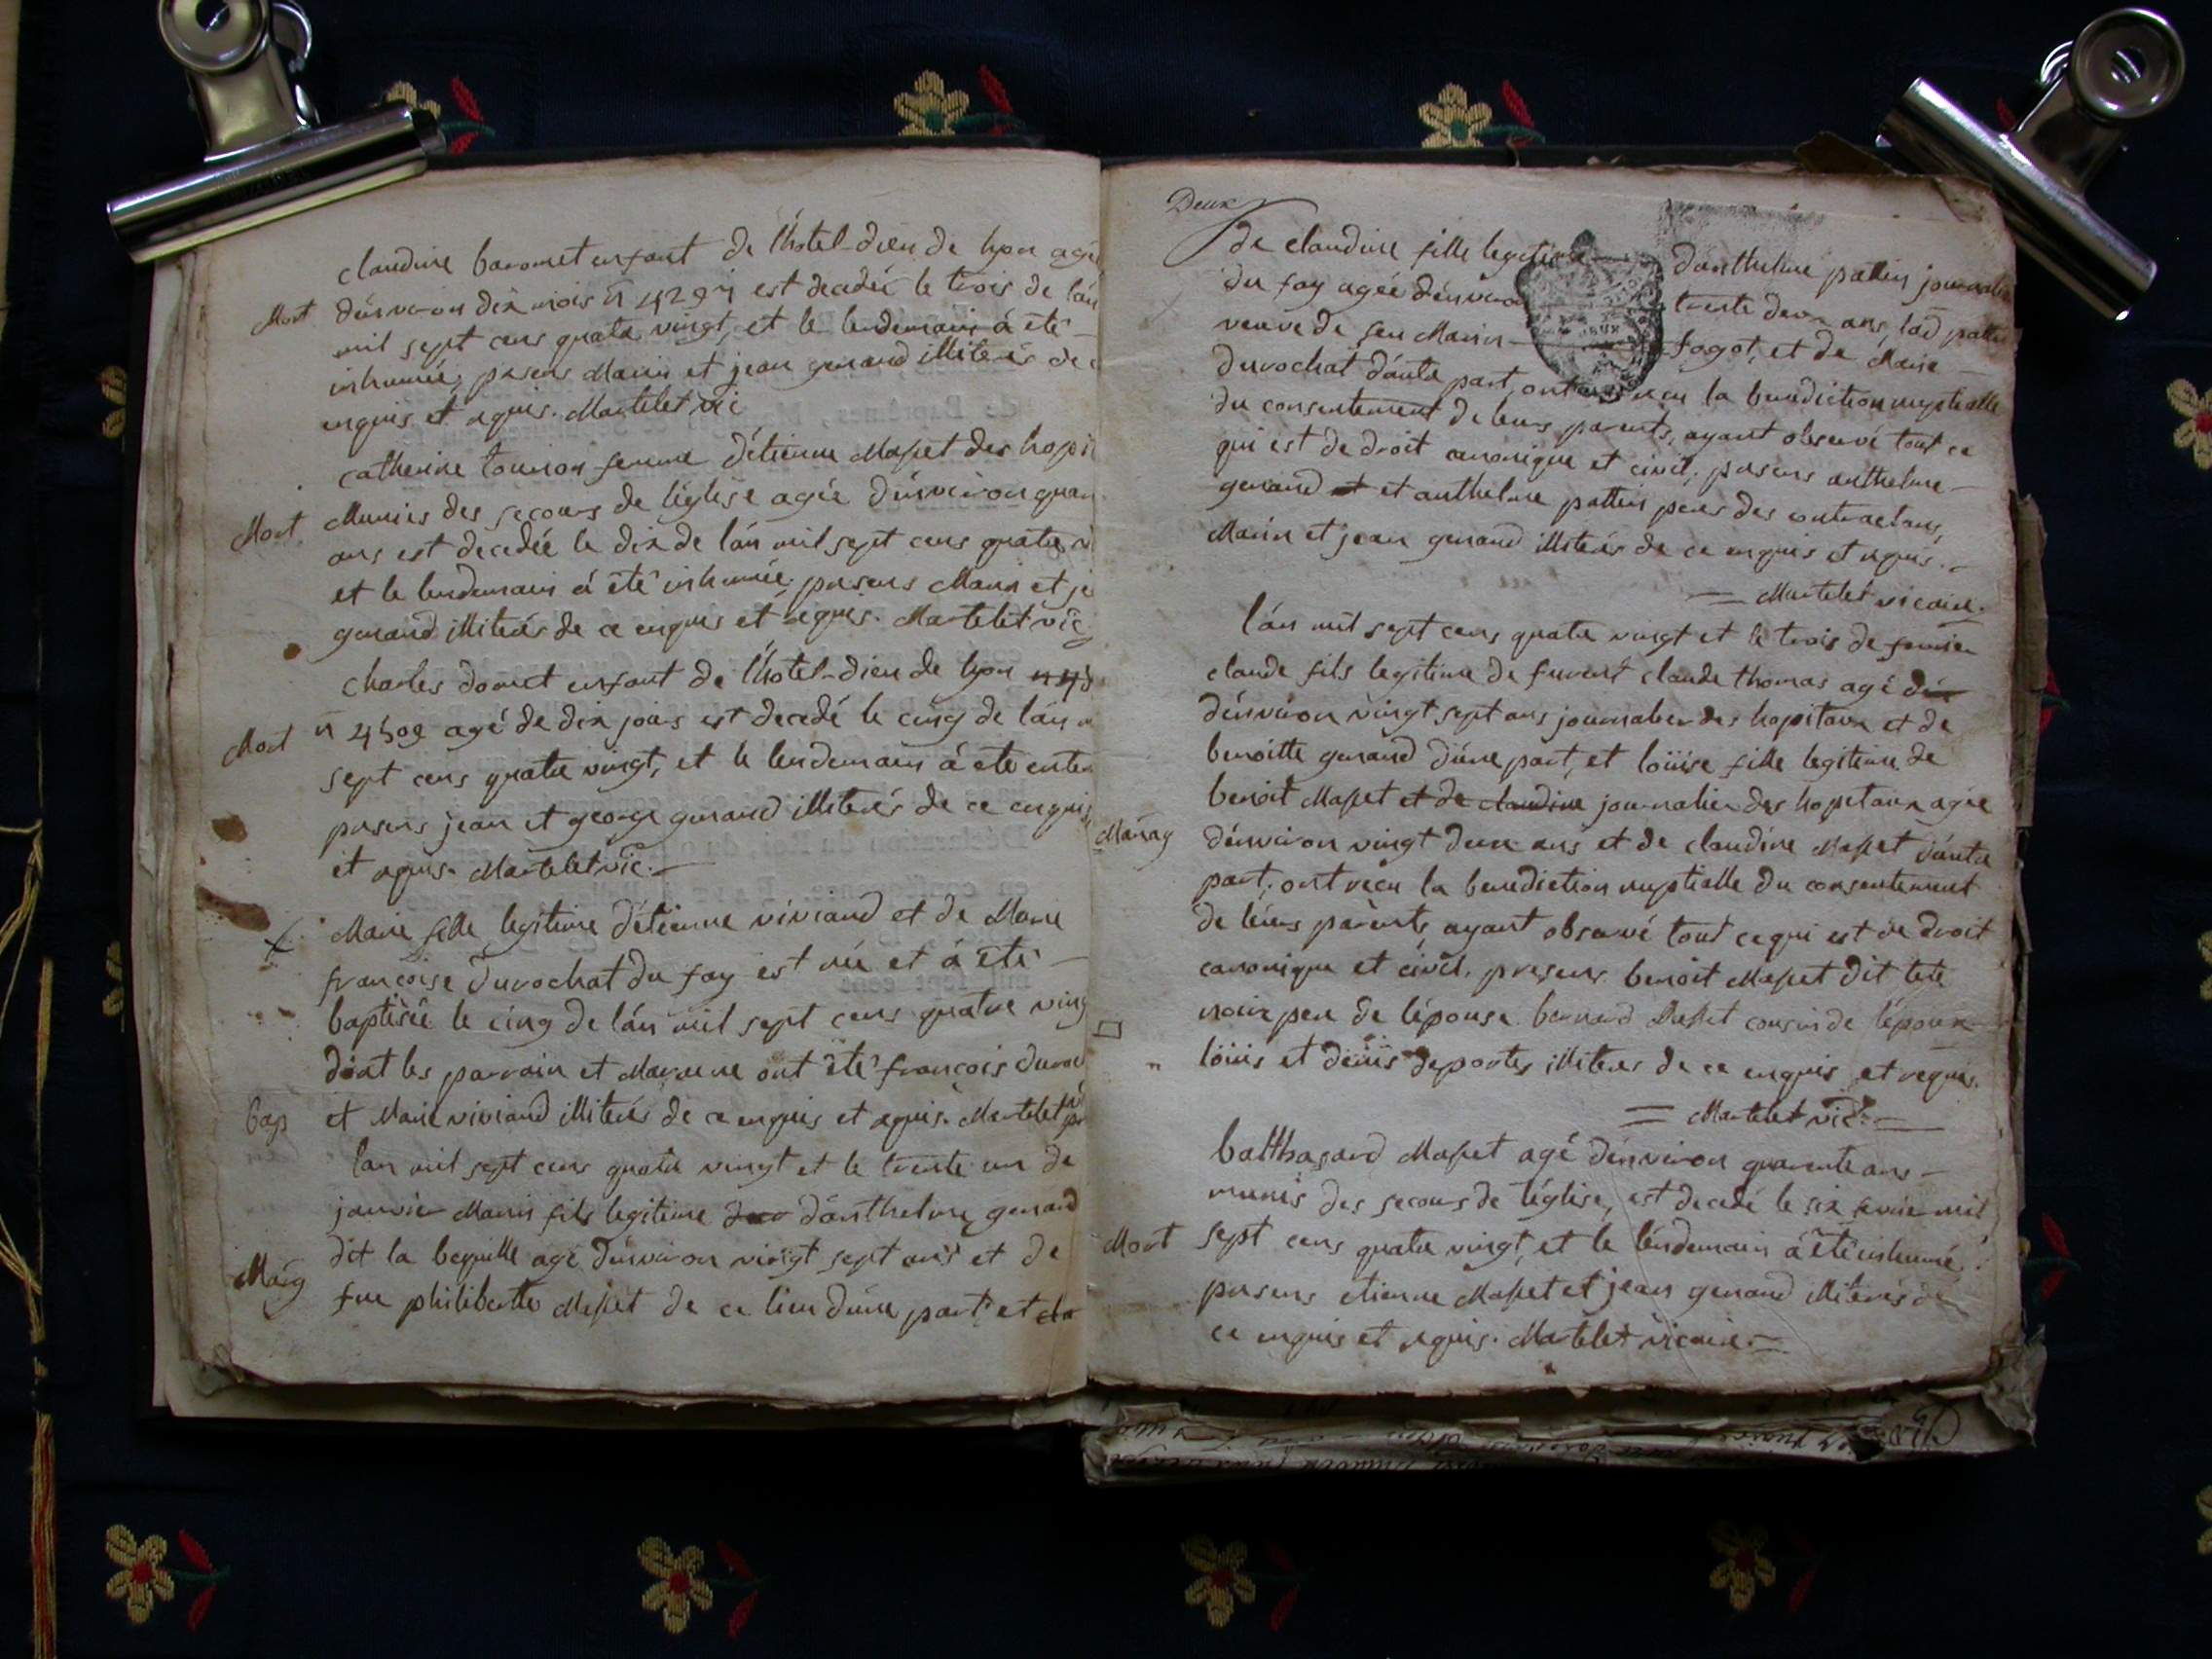 claudine baromet enfant de l'hotel-dieu de lyon agée
Mort d'environ dix mois n 4297 est decedée le trois de l'an
mil sept cens quatre vingt, et le lendemain à eté
inhumée, presens Marin et jean genand illiterés de c
enquis et requis. Martelet vic
catherine tournon femme d'etienne Masset des hopit
Munies des secours de l'eglise agée d'environ quar
Mort ans est decedée le dix de l'an mil sept cens quatre vi
et le lendemain à eté inhumée. presens Marin et je
genand illiterés de ce enquis et requis. Martelet vic
charles domet enfant de l'hotel-dieu de lyon
Mort n 4509 agé de dix jours est decedé le cinq de l'an m
sept cens quatre vingt, et le lendemain à eté enter
presens jean et george genand illiterés de ce enquis
et requis. Martelet vic.
Marie fille legitime d'etienne viviand et de Marie
françoise durochat du fay est née et à eté
baptisée le cinq de l'an mil sept cens quatre ving
dont les parrain et Marraine ont eté françois duroc
bap et Marie viviand illiterés de ce enquis et requis. Martelet
l'an mil sept cens quatre vingt et le trente un de
janvier Marin fils legitime d'anthelme genand
dit la bequille agé d'environ vingt sept ans et de
Marg fue philiberte Masset de ce lieu d'une part et cla
Deux
de claudine fille legitime d'anthelme pattin journalier
du fay agée d'environ trente deux ans, lad pattin
veuve de feu Marin fagot, et de Marie
durochat d'autre part, ont reçu la benediction nuptialle
du consentement de leurs parents, ayant observé tout ce
qui est de droit canonique et civil; presens anthelme
genand et et anthelme pattin peres des contractans,
Marin et jean genand illiterés de ce enquis et requis.
Martelet vicaire.
l'an mil sept cens quatre vingt et le trois de fevrier
claude fils legitime de fuvent claude thomas agé
d'environ vingt sept ans journalier des hopitaux et de
benoitte genand d'une part, et loüise fille legitime de
benoit Masset et de claudine journalier des hopitaux agée
Mariag d'environ vingt deux ans et de claudine Masset d'autre
part. ont reçu la benediction nuptialle du consentement
de leurs parents ayant observé tout ce qui est de droit
canonique et civil. presens benoit Masset dit tete
noire pere de l'epouse bernard Masset cousin de l'epoux
loüis et denis deportes illiteres de ce enquis et requis.
Martelet vic.
balthasard Masset agé d'environ quarante ans
munis des secours de l'eglise, est decedé le six fevrier mil
Mort sept cens quatre vingt, et le lendemain à eté inhumé.
presens etienne Masset et jean genand illiterés de
ce enquis et requis. Martelet vicaire.